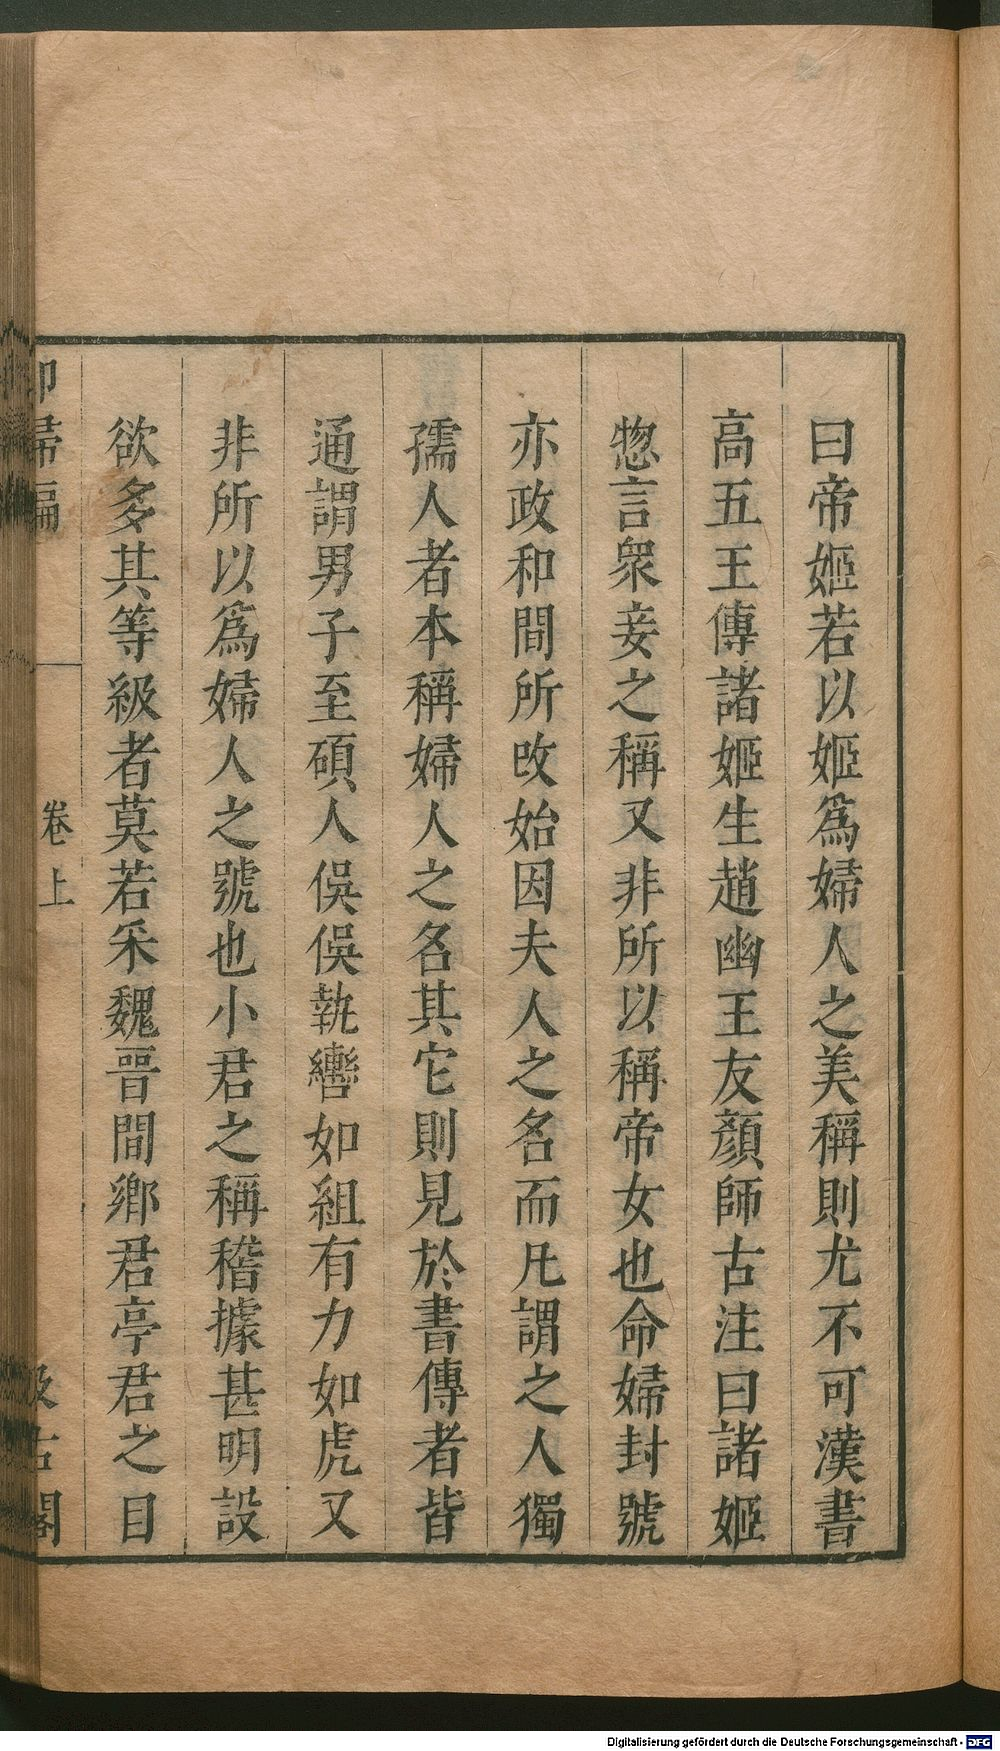 曰帝姬若以姬爲婦人之美稱則尤不可漢書
高五王傳諸姬生趙幽王友顏師古注曰諸姬
惣言衆妾之稱又非所以稱帝女也命婦封號
亦政和間所改始因夫人之名而凡謂之人獨
孺人者本稱婦人之名其它則見於書傳者皆
通謂男子至碩人俁俁執轡如組有力如虎又
非所以爲婦人之號也小君之稱稽據甚明設
欲多其等級者莫若采魏晉間鄉君亭君之目
卻掃編
卷上
汲古閣
Digitalisierung gefördert durch die Deutsche Forschungsgemeinschaft - DFG